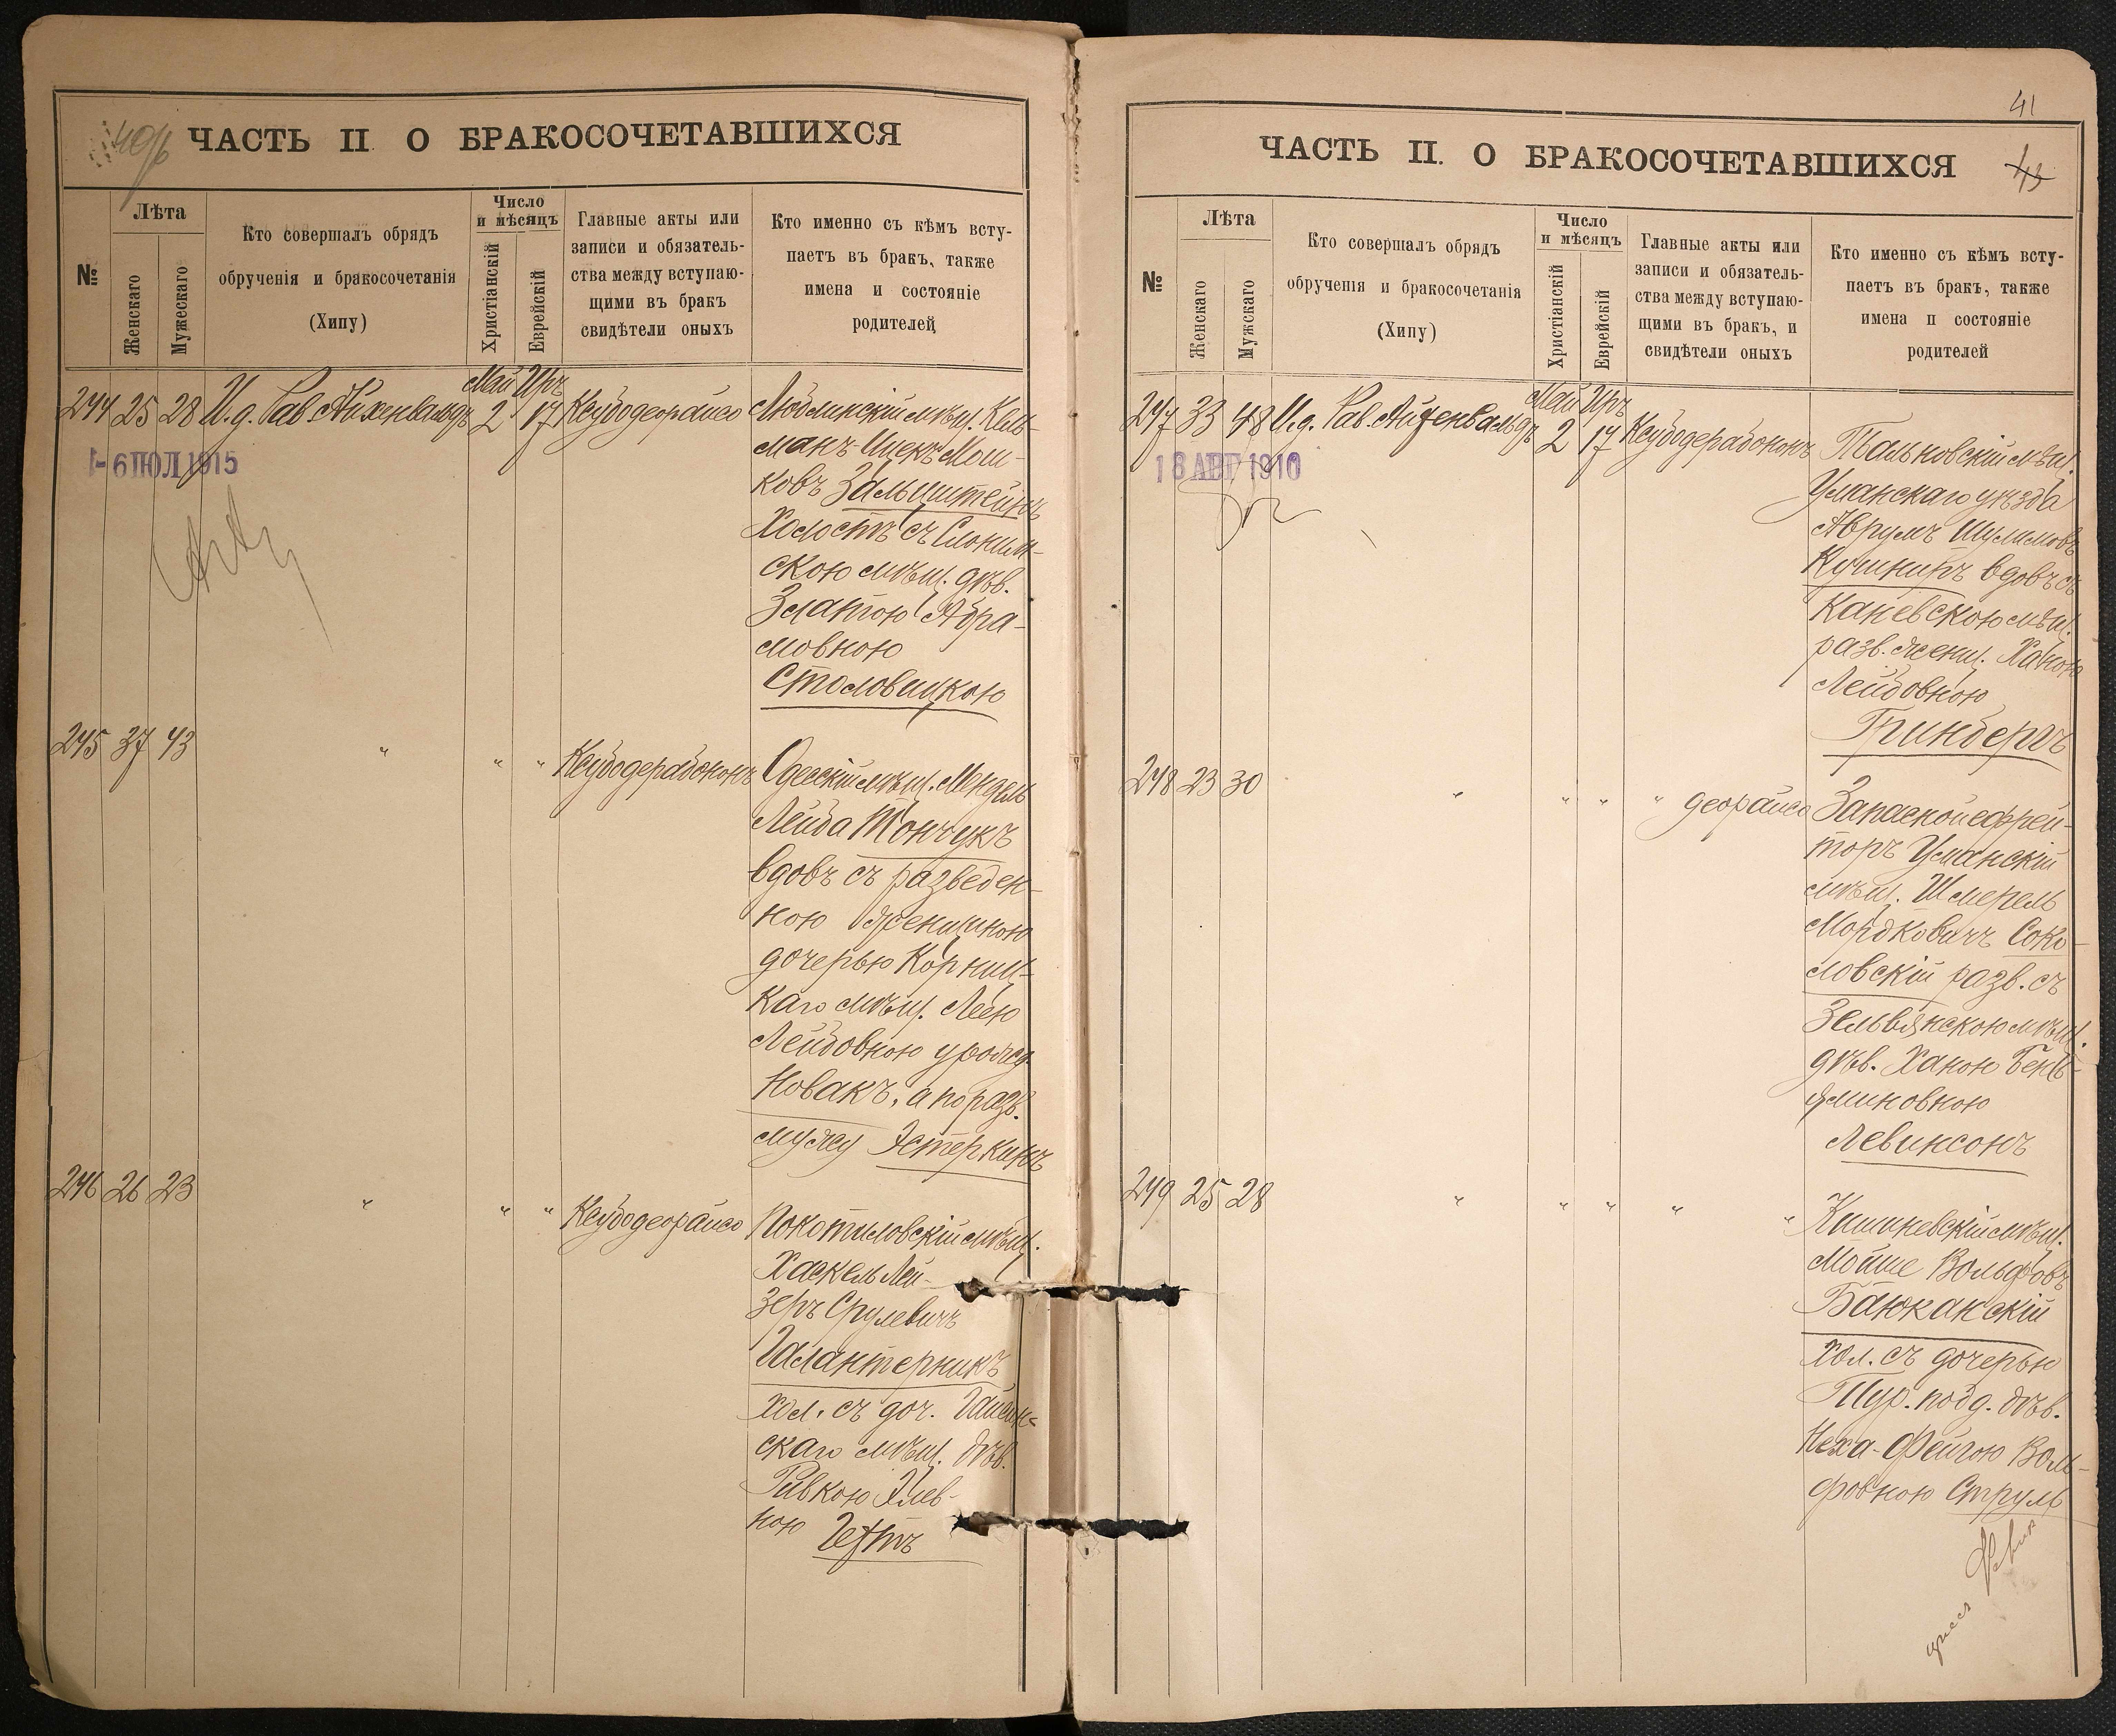 ЧАСТЬ II О БРАКОСОЧЕТАВШИХСЯ
№
Лѣта
Женскаго
Мужескаго
Кто совершалъ обрядъ
обрученія и бракосочетанія
(Хипу)
Число
и мѣсяцъ
Христіанскій
Еврейскій
Главные акты или
записи и обязатель-
ства между вступаю-
щими въ бракъ
свидѣтели оныхъ
Кто именно съ кѣмъ всту-
паетъ въ бракъ, также
имена и состояніе
родителей
Май Иръ
244 25 28 И.д. Рав. Айхенвальдъ 2 17 Ксубодеорайсо
Люблинскій мѣщ. Кель-
манъ-Ицекъ Мош-
ковъ Зальцштейнъ
Холостъ съ Слоним-
скою мѣщ. дѣв.
Златою Абра-
мовною
Столовицкою
- 6 ІЮЛ 1915
245 37 43 " " " Ксубодерабононъ
Одесскій мѣщ. Мендель
Лейба Тончукъ
вдовъ съ разведен-
ною женщиною
дочерью Корниц-
каго мѣщ. Леею
Лейбовною урожд.
Новакъ, а по разв.
мужу Эстеркинъ
246 26 23 " " " Ксубодеорайсо
Покотиловскій мѣщ.
Хаскель Лей-
зеръ Срулевичъ
Галантерникъ
хол. съ доч. Гайсин-
скаго мѣщ. дѣв.
Ривкою Элев-
ною Гехтъ
41
ЧАСТЬ II. О БРАКОСОЧЕТАВШИХСЯ
43
№
Лѣта
Женскаго
Мужскаго
Кто совершалъ обрядъ
обрученія и бракосочетанія
(Хипу)
Число
и мѣсяцъ
Христіанскій
Еврейскій
Главные акты или
записи и обязатель-
ства между вступаю-
щими въ бракъ, и
свидѣтели оныхъ
Кто именно съ кѣмъ всту-
паетъ въ бракъ, также
имена и состояніе
родителей
Май Иръ
247 33 48 И.д. Рав. Айхенвальдъ 2 17 Ксубодерабононъ
Тальновскій мѣщ.
Уманскаго уѣзда
Аврумъ Шулимовъ
Кушниръ вдовъ съ
Каневскою мѣщ.
разв. женщ. Ханою
Лейбовною
Гринбергъ
18 АВГ 1910
248 23 30 " " " " деорайсо
Запасной ефрей-
торъ Уманскій
мѣщ. Шмерель
Мордковичъ Соко-
ловскій разв. съ
Зельвянскою мѣщ.
дѣв. Ханою Бень-
яминовною
Левинсонъ
249 25 28 " " " " "
Кишиневскій мѣщ.
Мойше Вольфовъ
Банканскій
хол. съ дочерью
Тур. подд. дѣв.
Неха-Фейгою Воль-
фовною Струль